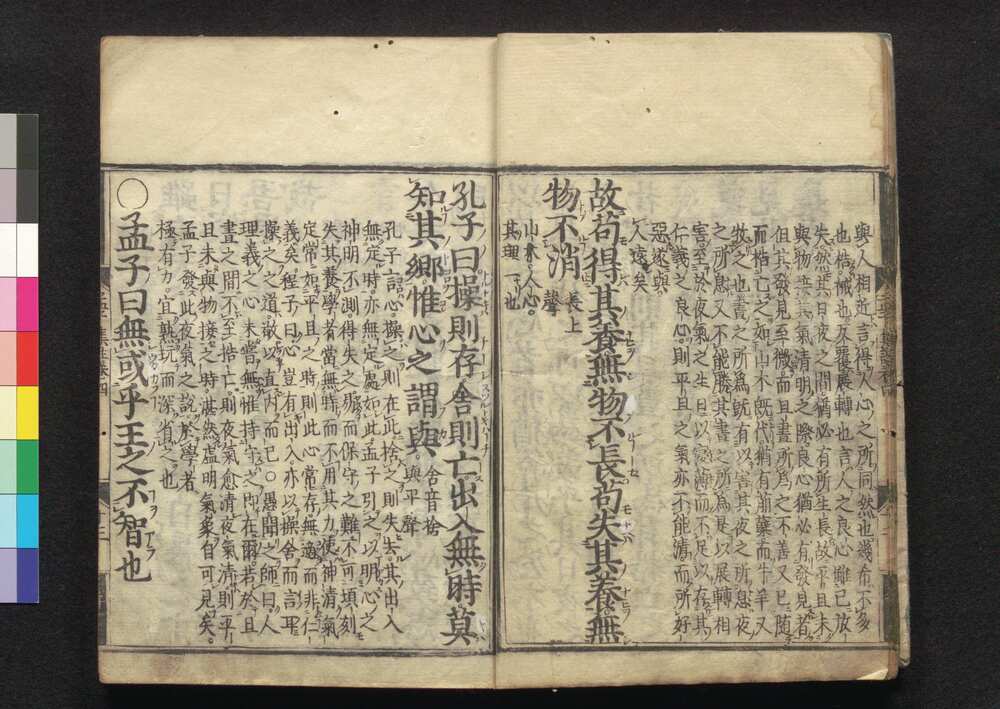 與人相近言得人心之所同然也幾希不多
也梏械也反覆展轉也言人之良心雖已放
失然其日夜之間猶必有所生長故平旦未
與物接其氣清明之際良心猶必有發見者
但其發見至微而旦晝所爲之不善又已隨
而梏亡之如山木既伐猶有萌蘗而牛羊又
牧之也晝之所爲既有以害其夜之所息夜
之所息又不能勝其晝之所爲是以展轉相
害至於夜氣之生日以寖薄而不足以存其
仁義之良心則平旦之氣亦不能清而所好
惡遂與
人遠矣
故苟得其養無物不長苟失其養無
物不消
長上
聲
山木人心。
其理一也
孔子曰操則存舍則亡出入無時莫
知其鄉惟心之謂與
舍音捨
與平聲
孔子言心操之則在此捨之則失去其出入
無定時亦無定處如此孟子引之以明心之
神明不測得失之易而保守之難不可頃刻
失其養學者當無時而不用其力使神清氣
定常如平旦之時則此心常存無適而非仁
義矣程子曰心豈有出入亦以操舍而言耳
操之之道敬以直内而已。愚聞之師曰人
理義之心未嘗無惟持守之即在爾若於旦
晝之間不至梏亡則夜氣愈清夜氣清則平
旦未與物接之時湛然虛明氣象自可見矣。
孟子發此夜氣之說於學者
極有力宜熟玩而深省之也
○孟子曰無或乎王之不智也